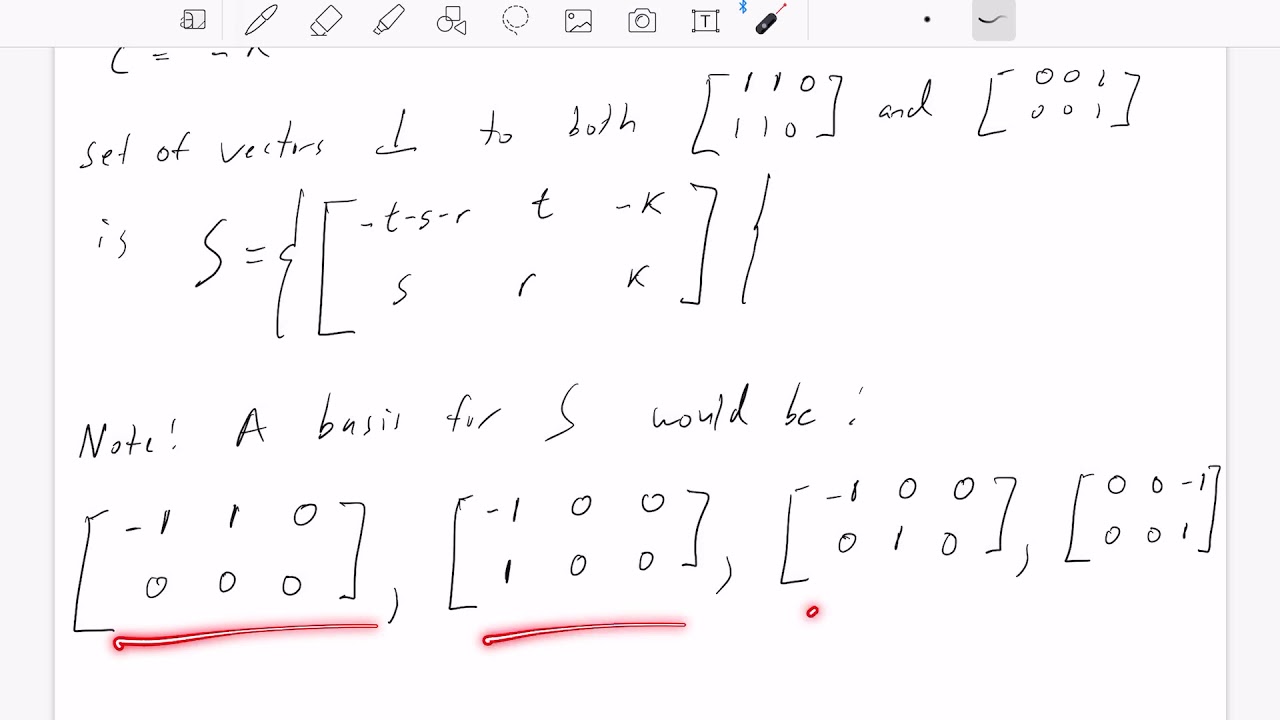 set of vectors ⊥ to both [1 1 0; 1 1 0] and [0 0 1; 0 0 1]
is S = { [-t-s-r t -k; s r k] }
Note! A basis for S would be:
[-1 1 0; 0 0 0], [-1 0 0; 1 0 0], [-1 0 0; 0 1 0], [0 0 -1; 0 0 1]